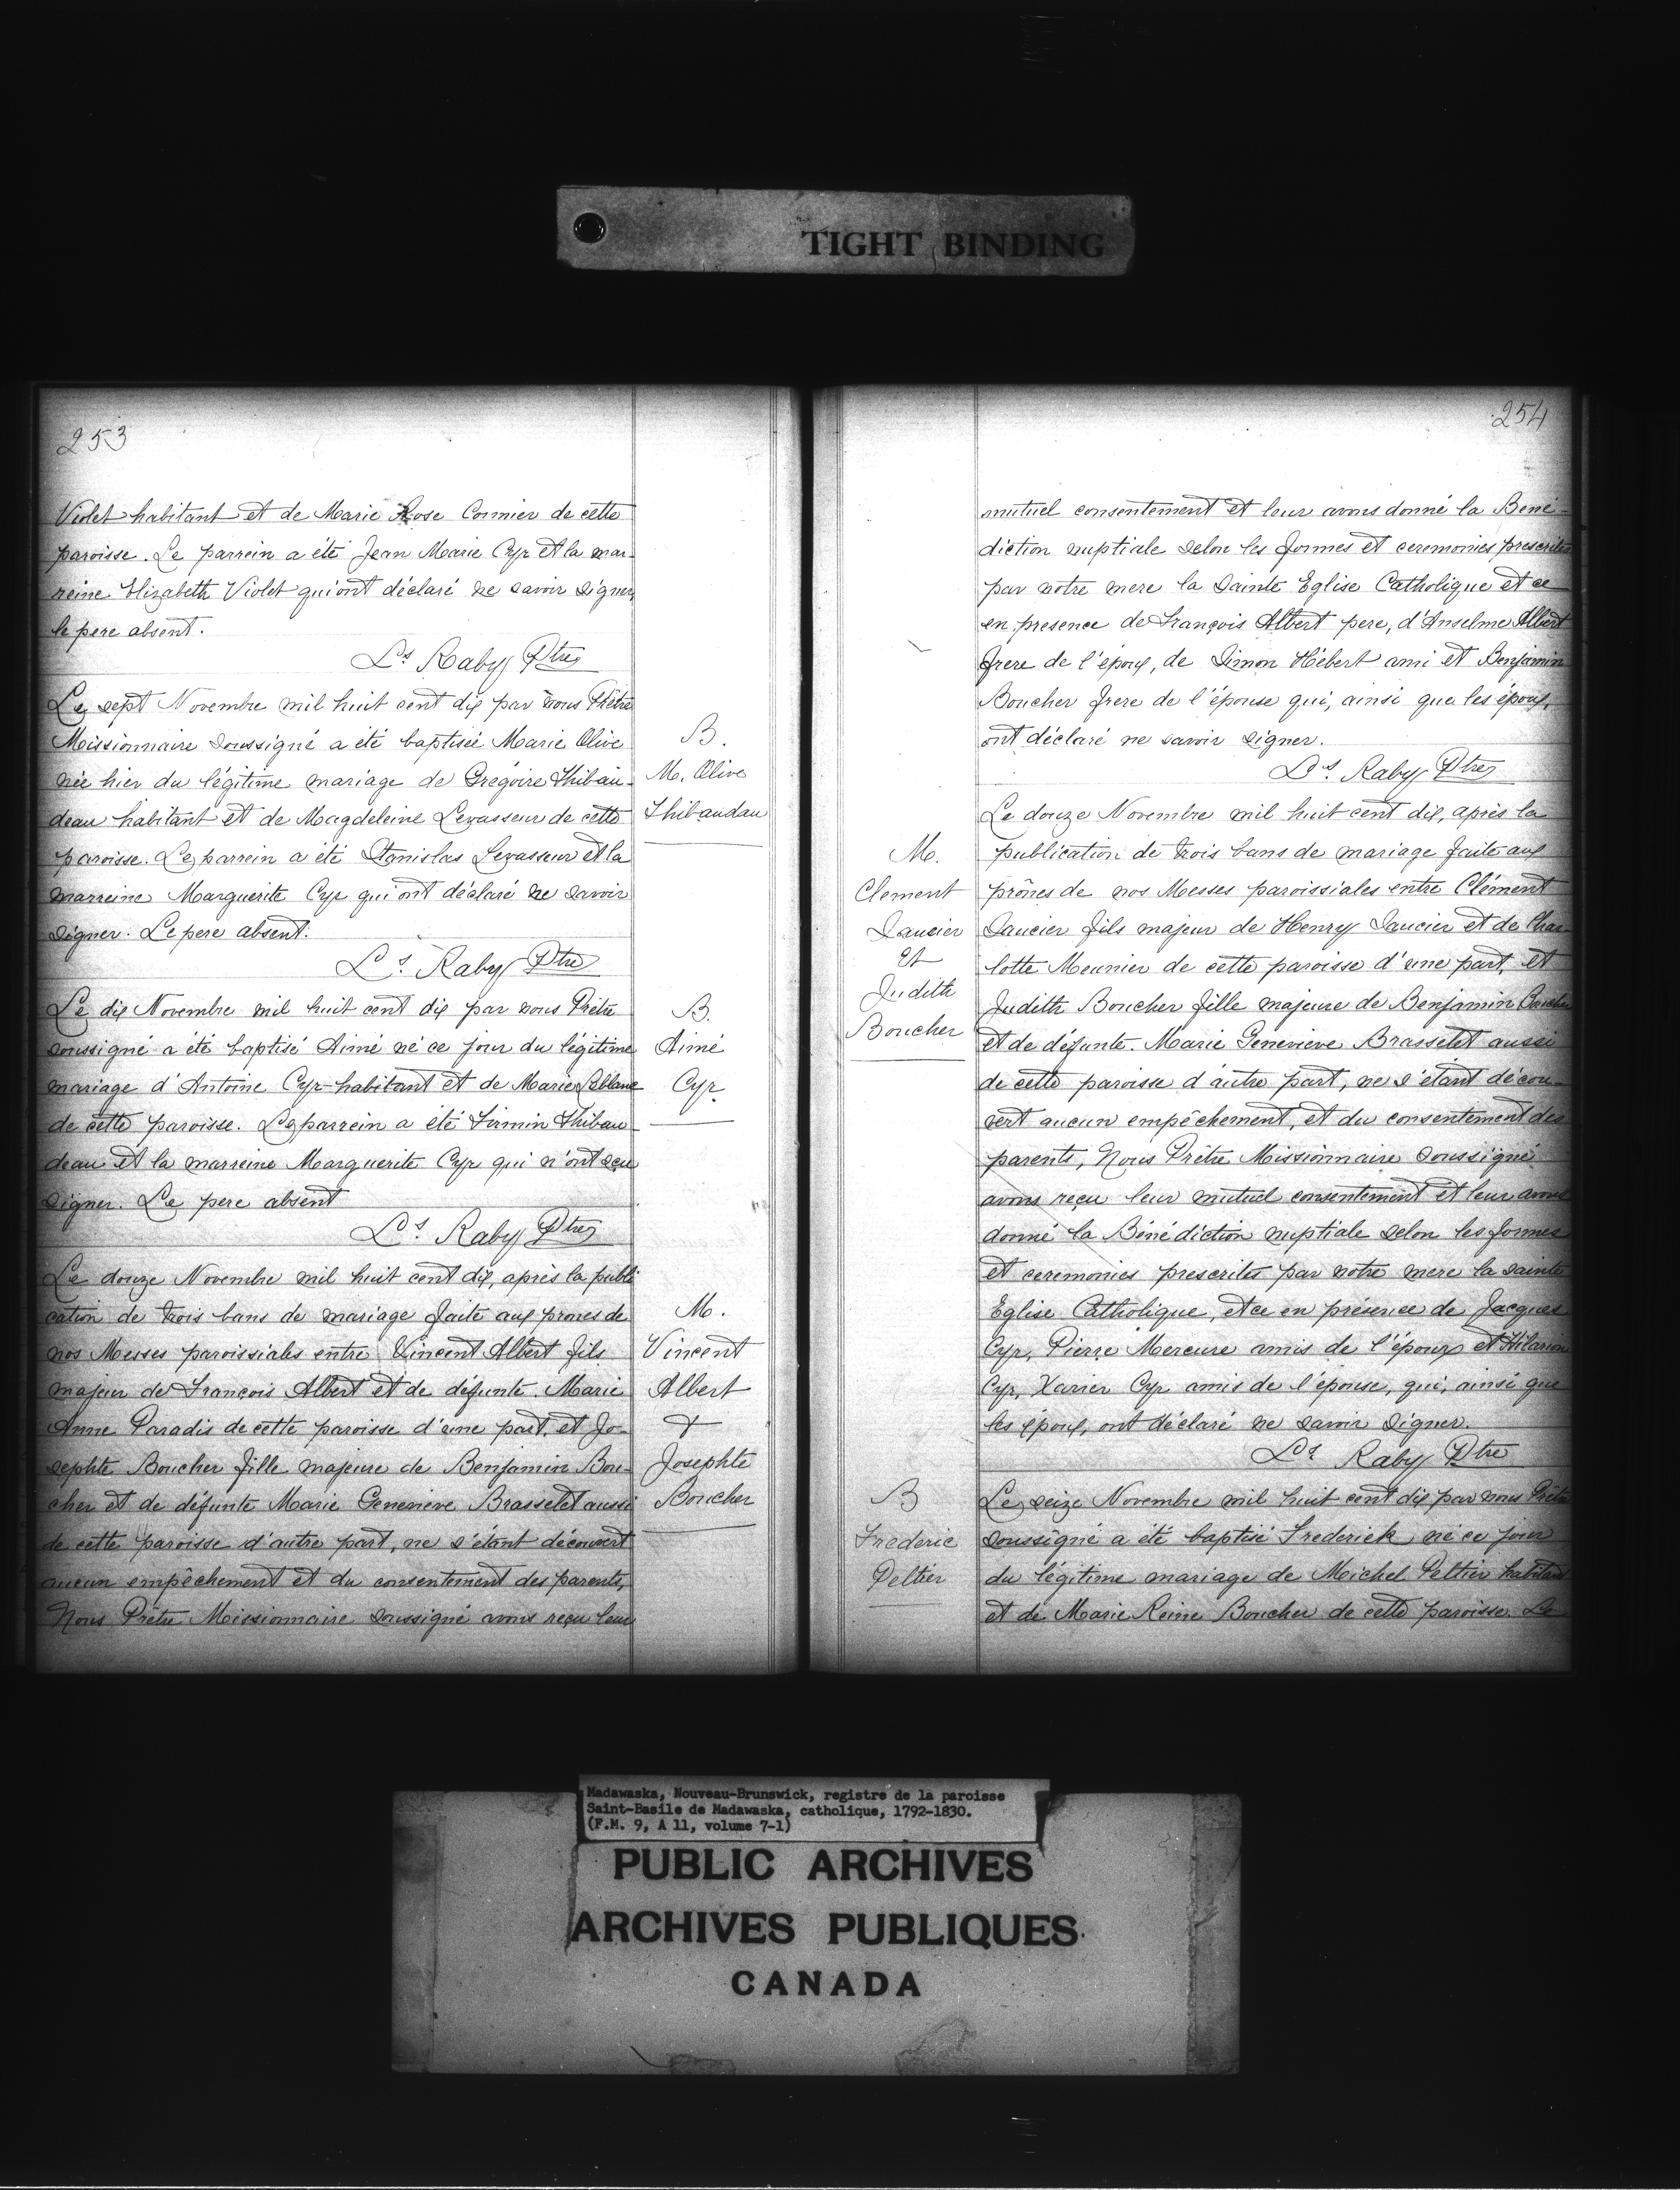 TIGHT BINDING
253
Violet habitant et de Marie Rose Cormier de cette
paroisse. Le parrein a été Jean Marie Cyr et la mar-
reine Elizabeth Violet qui ont déclaré ne savoir signer,
le pere absent.
Ls. Raby Ptre
Le sept Novembre mil huit cent dix par nous Prêtre
Missionnaire soussigné a été baptisée Marie Olive
née hier du légitime mariage de Grégoire Thibau-
deau habitant et de Magdeleine Levasseur de cette
paroisse. Le parrein a été Stanislas Levasseur et la
marreine Marguerite Cyr qui ont déclaré ne savoir
signer. Le pere absent.
Ls. Raby Ptre
B.
M. Olive
Thibaudau
Le dix Novembre mil huit cent dix par nous Prêtre
soussigné a été baptisé Aimé né ce jour du légitime
mariage d'Antoine Cyr habitant et de Marie Leblanc
de cette paroisse. Le parrein a été Firmin Thibau-
deau et la marreine Marguerite Cyr qui n'ont sçu
signer. Le pere absent
Ls. Raby Ptre
B.
Aimé
Cyr
Le douze Novembre mil huit cent dix, après la publi
cation de trois bans de mariage faite aux prones de
nos Messes paroissiales entre Vincent Albert fils
majeur de François Albert et de défunte Marie
Anne Paradis de cette paroisse d'une part, et Jo-
sephte Boucher fille majeure de Benjamin Bou-
cher et de défunte Marie Genevieve Brasselet aussi
de cette paroisse d'autre part, ne s'étant découvert
aucun empêchement et du consentement des parents,
Nous Prêtre Missionnaire soussigné avons reçu leur
M.
Vincent
Albert
+
Josephte
Boucher
254
mutuel consentement et leur avons donné la Bene-
diction nuptiale selon les formes et ceremonies prescrites
par notre mere la Sainte Eglise Catholique et ce
en presence de François Albert pere, d'Anselme Albert
frere de l'époux, de Simon Hébert ami et Benjamin
Boucher frere de l'épouse qui, ainsi que les époux,
ont déclaré ne savoir signer.
Ls. Raby Ptre
Le douze Novembre mil huit cent dix, après la
publication de trois bans de mariage faite aux
prônes de nos Messes paroissiales entre Clément
Saucier fils majeur de Henry Saucier et de Char-
lotte Meunier de cette paroisse d'une part, et
Judith Boucher fille majeure de Benjamin Boucher
et de défunte Marie Genevieve Brasselet aussi
de cette paroisse d'autre part, ne s'étant décou-
vert aucun empêchement, et du consentement des
parents, Nous Prêtre Missionnaire soussigné
avons reçu leur mutuel consentement et leur avons
donné la Bénédiction nuptiale selon les formes
et ceremonies prescrites par notre mere la sainte
Eglise Catholique, et ce en présence de Jacques
Cyr, Pierre Mercure amis de l'époux et Hilarion
Cyr, Xavier Cyr amis de l'épouse, qui, ainsi que
les époux, ont déclaré ne savoir signer.
Ls Raby Ptre
M.
Clement
Saucier
Et
Judith
Boucher
Le seize Novembre mil huit cent dix par nous Prêtre
soussigné a été baptisé Frederick né ce jour
du légitime mariage de Michel Peltier habitant
et de Marie Reine Boucher de cette paroisse. Le
B
Frederic
Peltier
Madawaska, Nouveau-Brunswick, registre de la paroisse
Saint-Basile de Madawaska, catholique, 1792-1830.
(F.M. 9, A 11, volume 7-1)
PUBLIC ARCHIVES
ARCHIVES PUBLIQUES
CANADA